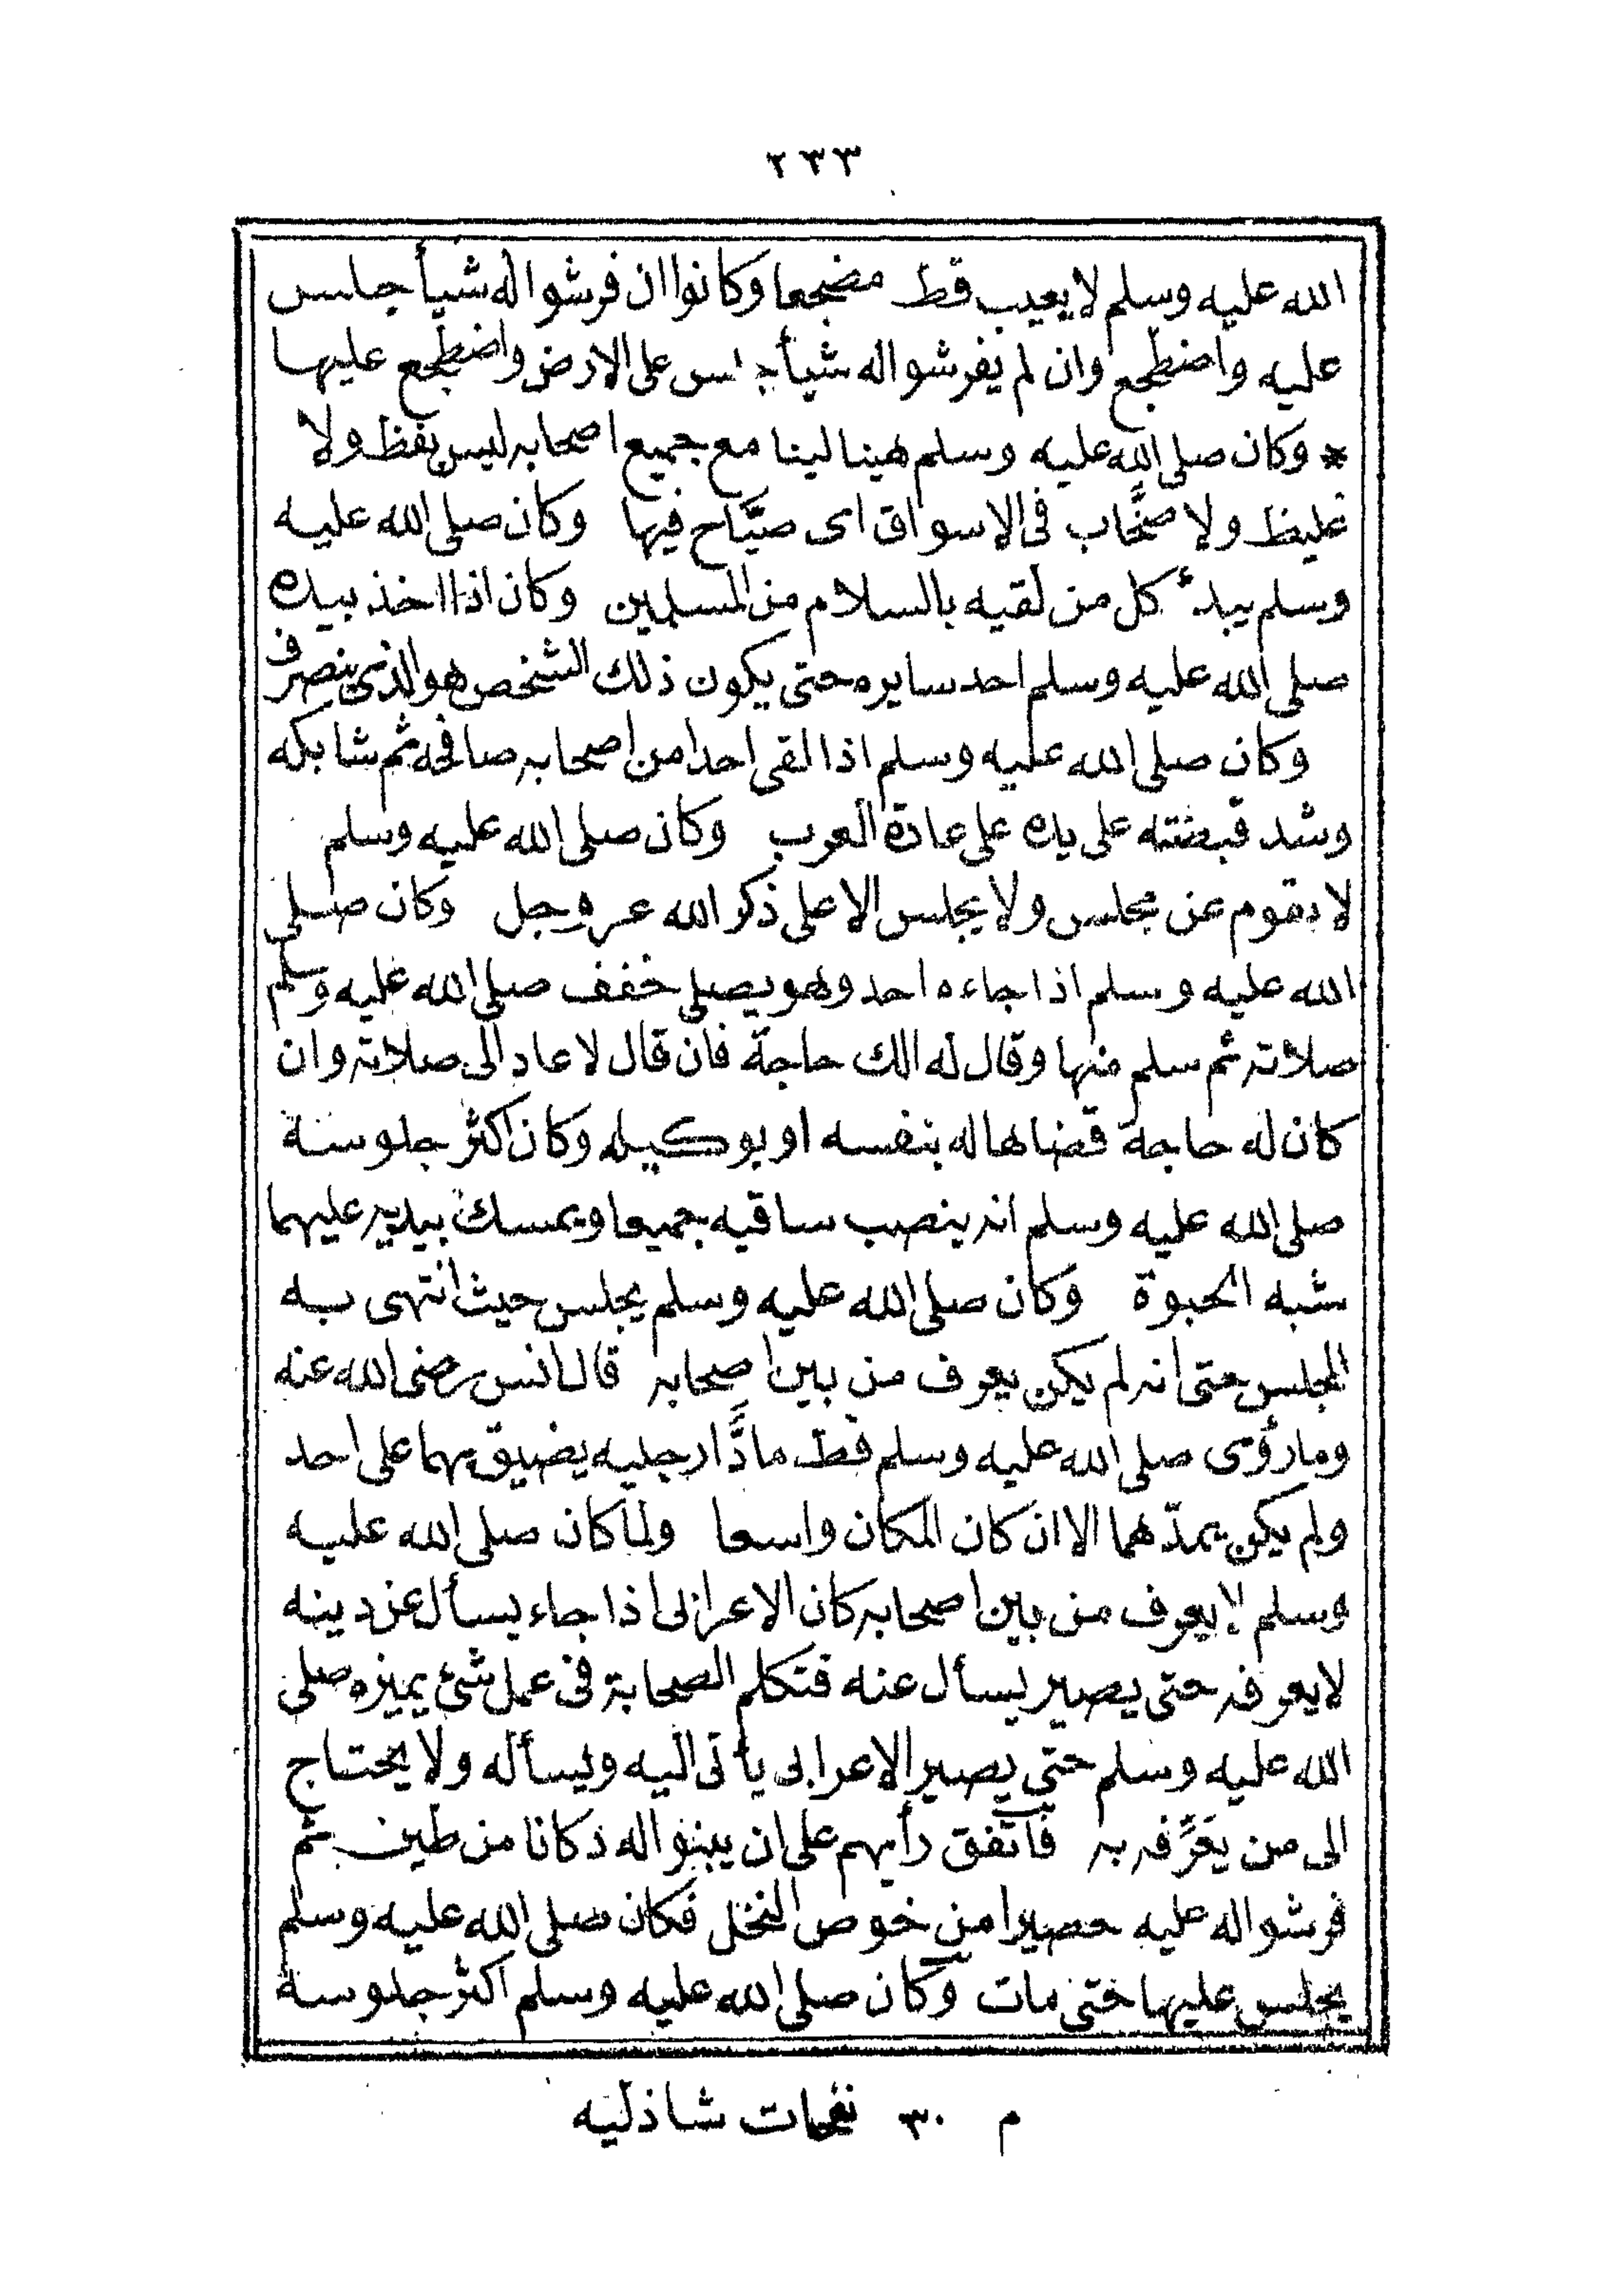 ٢٣٣
الله عليه وسلم لا يعيب قط مضجعا وكانوا ان فرشوا له شيأ جلس
عليه واضطجع وان لم يفرشوا له شيأ جلس على الارض واضطجع عليها
* وكان صلى الله عليه وسلم هينا لينا مع جميع اصحابه ليس بفظ ولا
غليظ ولا صخَّاب فى الاسواق اى صيَّاح فيها وكان صلى الله عليه
وسلم يبدأ كل من لقيه بالسلام من المسلمين وكان اذا اخذ بيده
صلى الله عليه وسلم احد سايره حتى يكون ذلك الشخص هو الذى ينصرف
وكان صلى الله عليه وسلم اذا لقى احدا من اصحابه صافحه ثم شابكه
وشد قبضته على يده على عادة العرب وكان صلى الله عليه وسلم
لا يقوم عن مجلس ولا يجلس الا على ذكر الله عز وجل وكان صلى
الله عليه وسلم اذا جاءه احد وهو يصلى خفف صلى الله عليه وسلم
صلاته ثم سلم منها وقال له الك حاجة فان قال لا عاد الى صلاته وان
كان له حاجة قضاها له بنفسه او بوكيله وكان اكثر جلوسه
صلى الله عليه وسلم انه ينصب ساقيه جميعا ويمسك بيديه عليهما
شبه الحبوة وكان صلى الله عليه وسلم يجلس حيث انتهى به
المجلس حتى انه لم يكن يعرف من بين اصحابه قال انس رضى الله عنه
وما رؤى صلى الله عليه وسلم قط مادًّا رجليه يضيق بهما على احد
ولم يكن يمدّهما الا ان كان المكان واسعا ولما كان صلى الله عليه
وسلم لا يعرف من بين اصحابه كان الاعرابى اذا جاء يسأل عن دينه
لا يعرفه حتى يصير يسأل عنه فتكلم الصحابة فى عمل شئ يميزه صلى
الله عليه وسلم حتى يصير الاعرابى يأتى اليه ويسأله ولا يحتاج
الى من يعَرِّفه به فاتّفق رأيهم على ان يبنوا له دكانا من طين ثم
فرشوا له عليه حصيرا من خوص النخل فكان صلى الله عليه وسلم
يجلس عليها حتى مات وكان صلى الله عليه وسلم اكثر جلوسه
م ٣٠ نفحات شاذليه